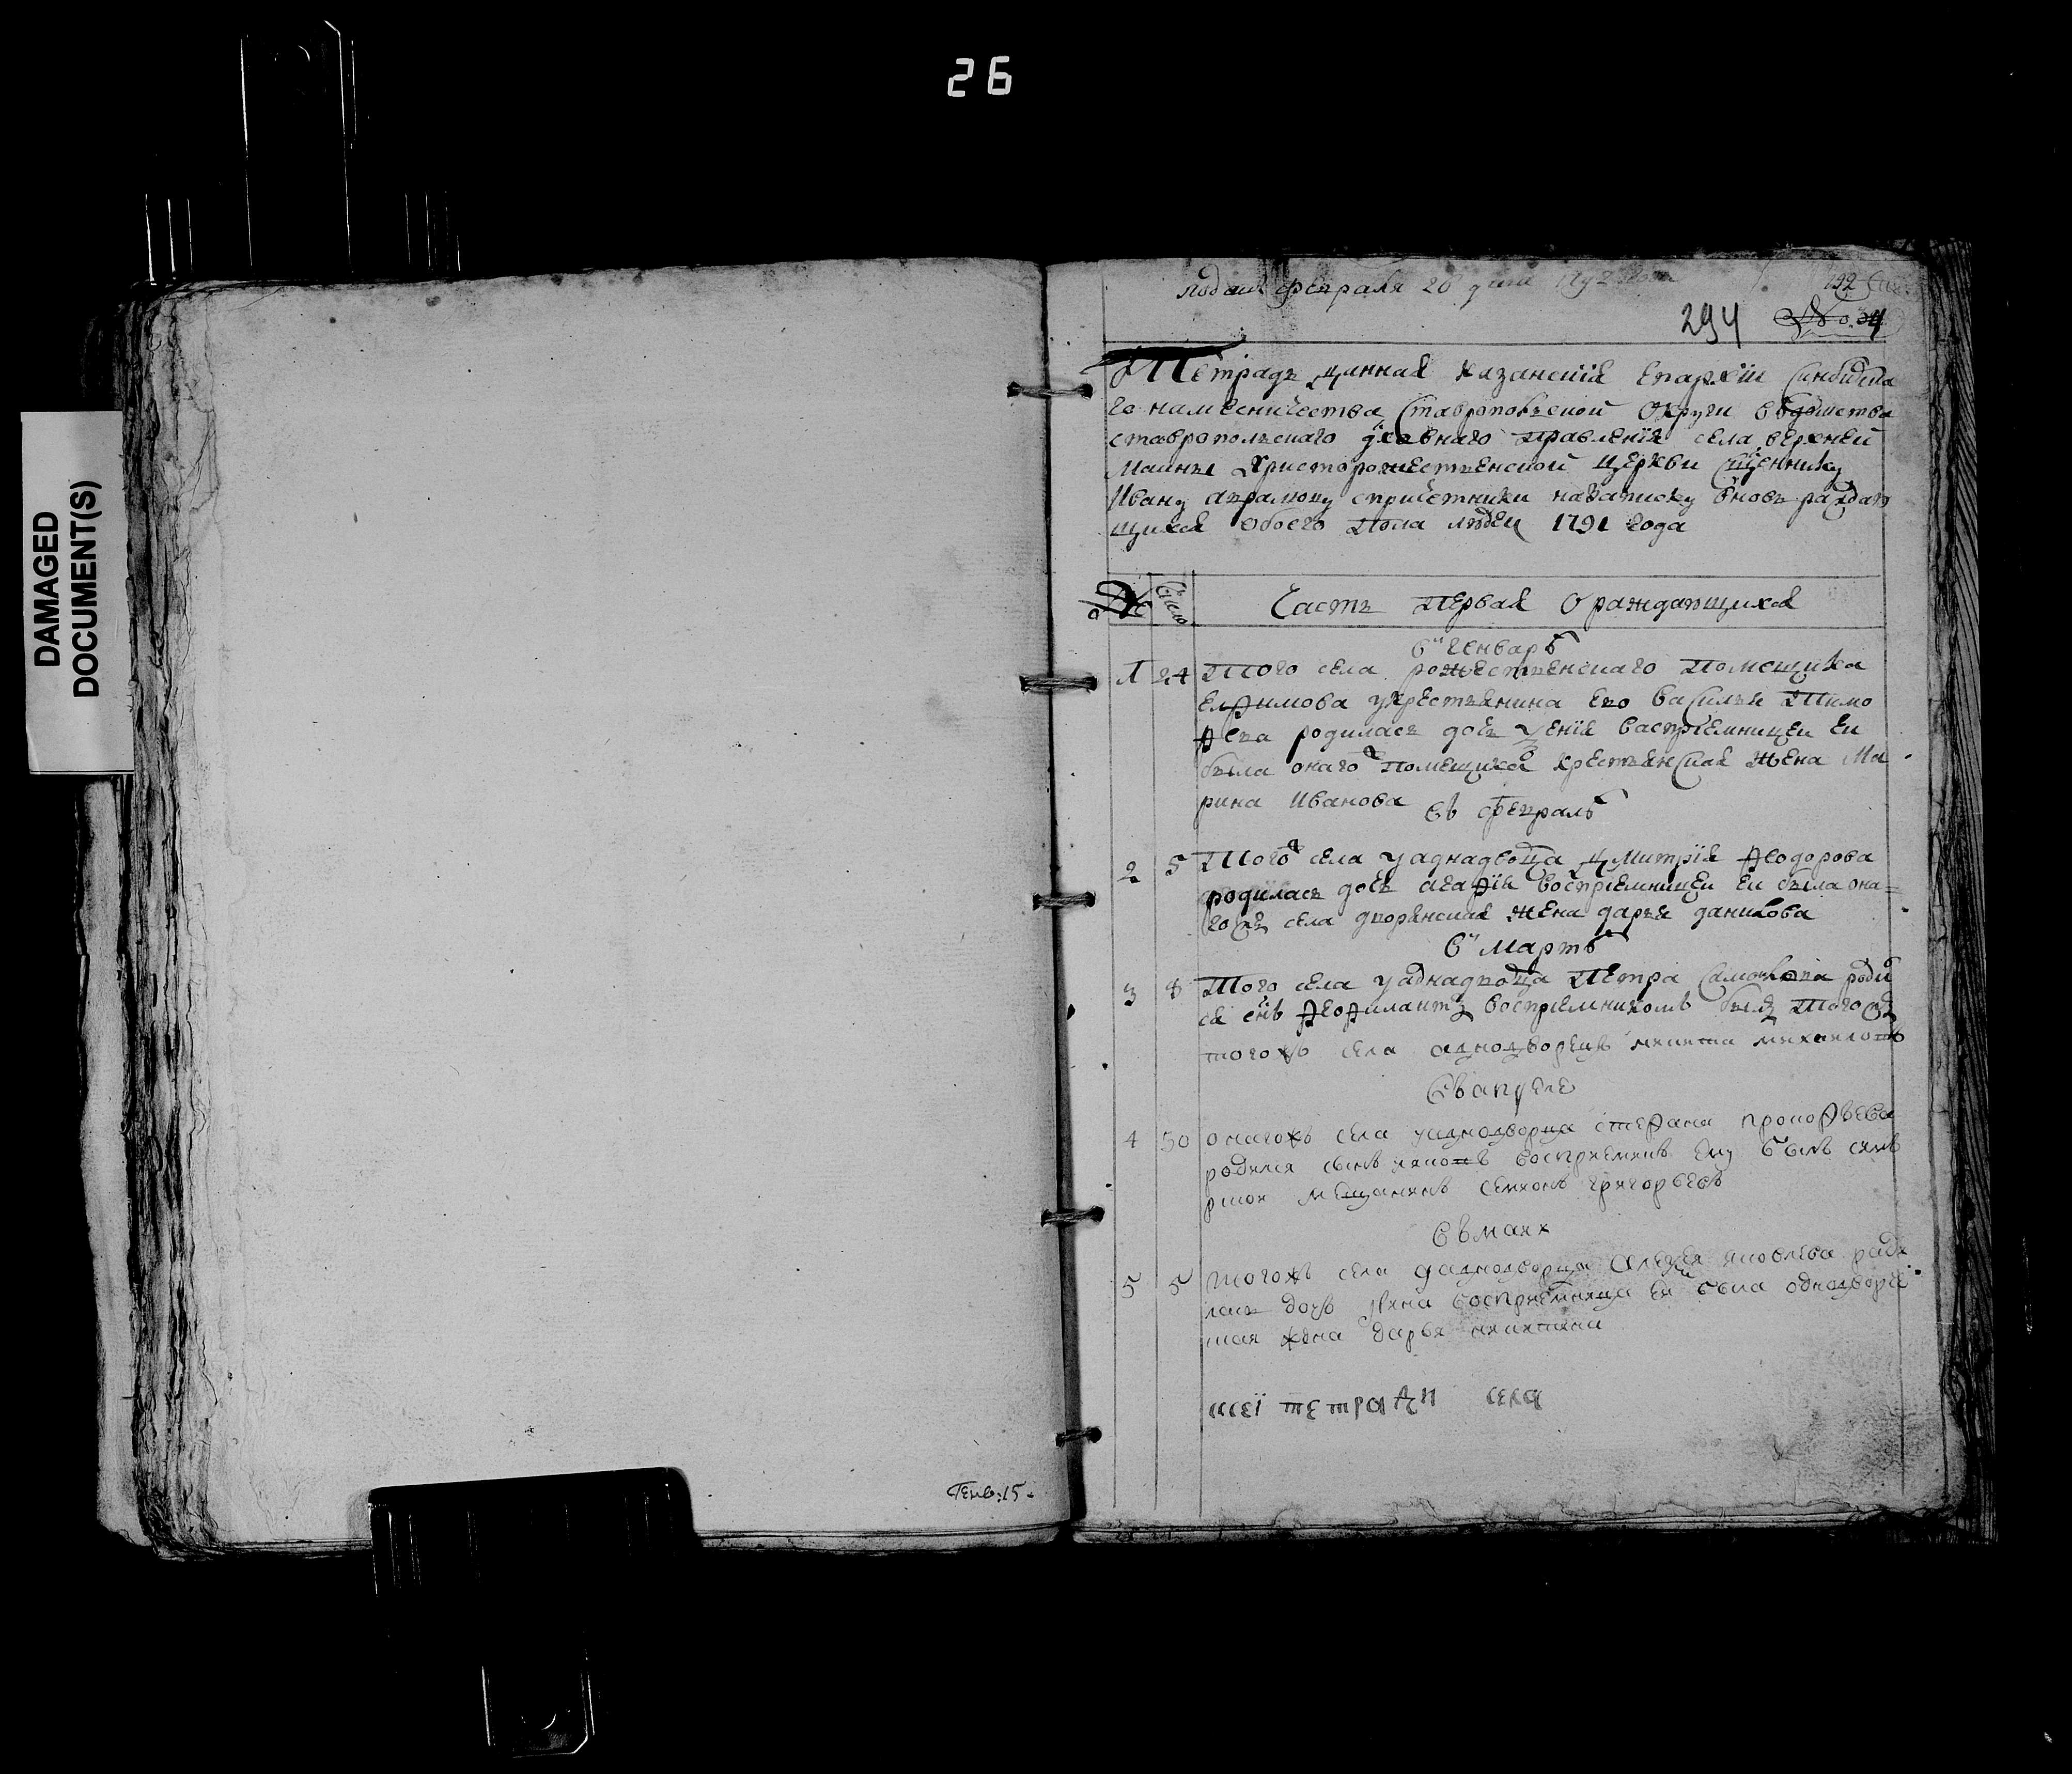 26
DAMAGED
DOCUMENT(S)
февраля 20 дня
192
294 4
Тетрадь данная казанския епархіи синбирска
го намесничества ставропольской округи ведомства
ставропольскаго дховнаго правленія села верхней
маины христорожественской церкви сщеннику
Ивану аврамову спричетники назаписку вновь раждаю
щихся обоего пола людеи 1791 года
Число
Часть первая о раждающихся
в генваре
1 24 Того села рожественскаго помещика
Ефимова укрестьянина ево василья Тимо
феева родилась дочь восприемницеи еи
была онагож помещика крестьянская жена Ма
рина Иванова
въ феврале
2 5 Тогож села уаднадворца Дмитрія Феодорова
родилась дочь агафія восприемницеи еи была она=
гожъ села дворянская жена дарья данилова
в марте
3 8 Того села уаднадворца Петра роди
ся снъ Феофилактъ восприемникомъ былъ
тогожъ села аднодворецъ никита михаиловъ
въ апреле
4 30 онагожъ села уаднодворца стефана прокофьева
родился сынъ восприемникъ ему былъ симб
рскои мещанинъ семионъ григорьевъ
въ маих
5 5 тогожъ села уаднодворца алексея яковлева роди
лась дочь восприемница еи была однодворче
ская жена дарья никитина
сеї тетрадп села
Генв: 15.